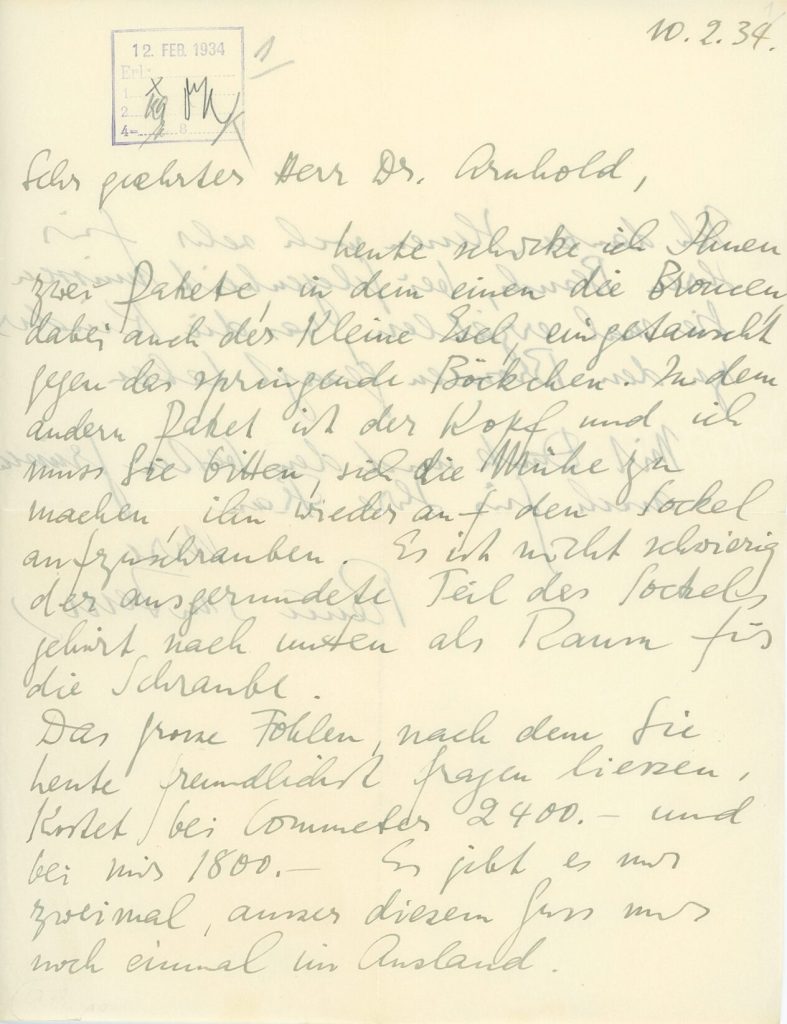 10.2.34.
12. FEB. 1934
1
Erl:
1
2
4=
8
Sehr geehrter Herr Dr. Arnhold,
heute schicke ich Ihnen
zwei Pakete, in dem einen die Broncen,
dabei auch der Kleine Esel, eingetauscht
gegen das springende Böckchen. In dem
andern Paket ist der Kopf und ich
muss Sie bitten, sich die Mühe zu
machen, ihn wieder auf den Sockel
aufzuschrauben. Es ist nicht schwierig
der ausgerundete Teil des Sockels
gehört nach unten als Raum für
die Schraube.
Das grosse Fohlen, nach dem Sie
heute freundlichst fragen liessen,
Kostet bei Commeter 2400.– und
bei mir 1800.– Es gibt es nur
zweimal, ausser diesem Guss nur
noch einmal im Ausland.